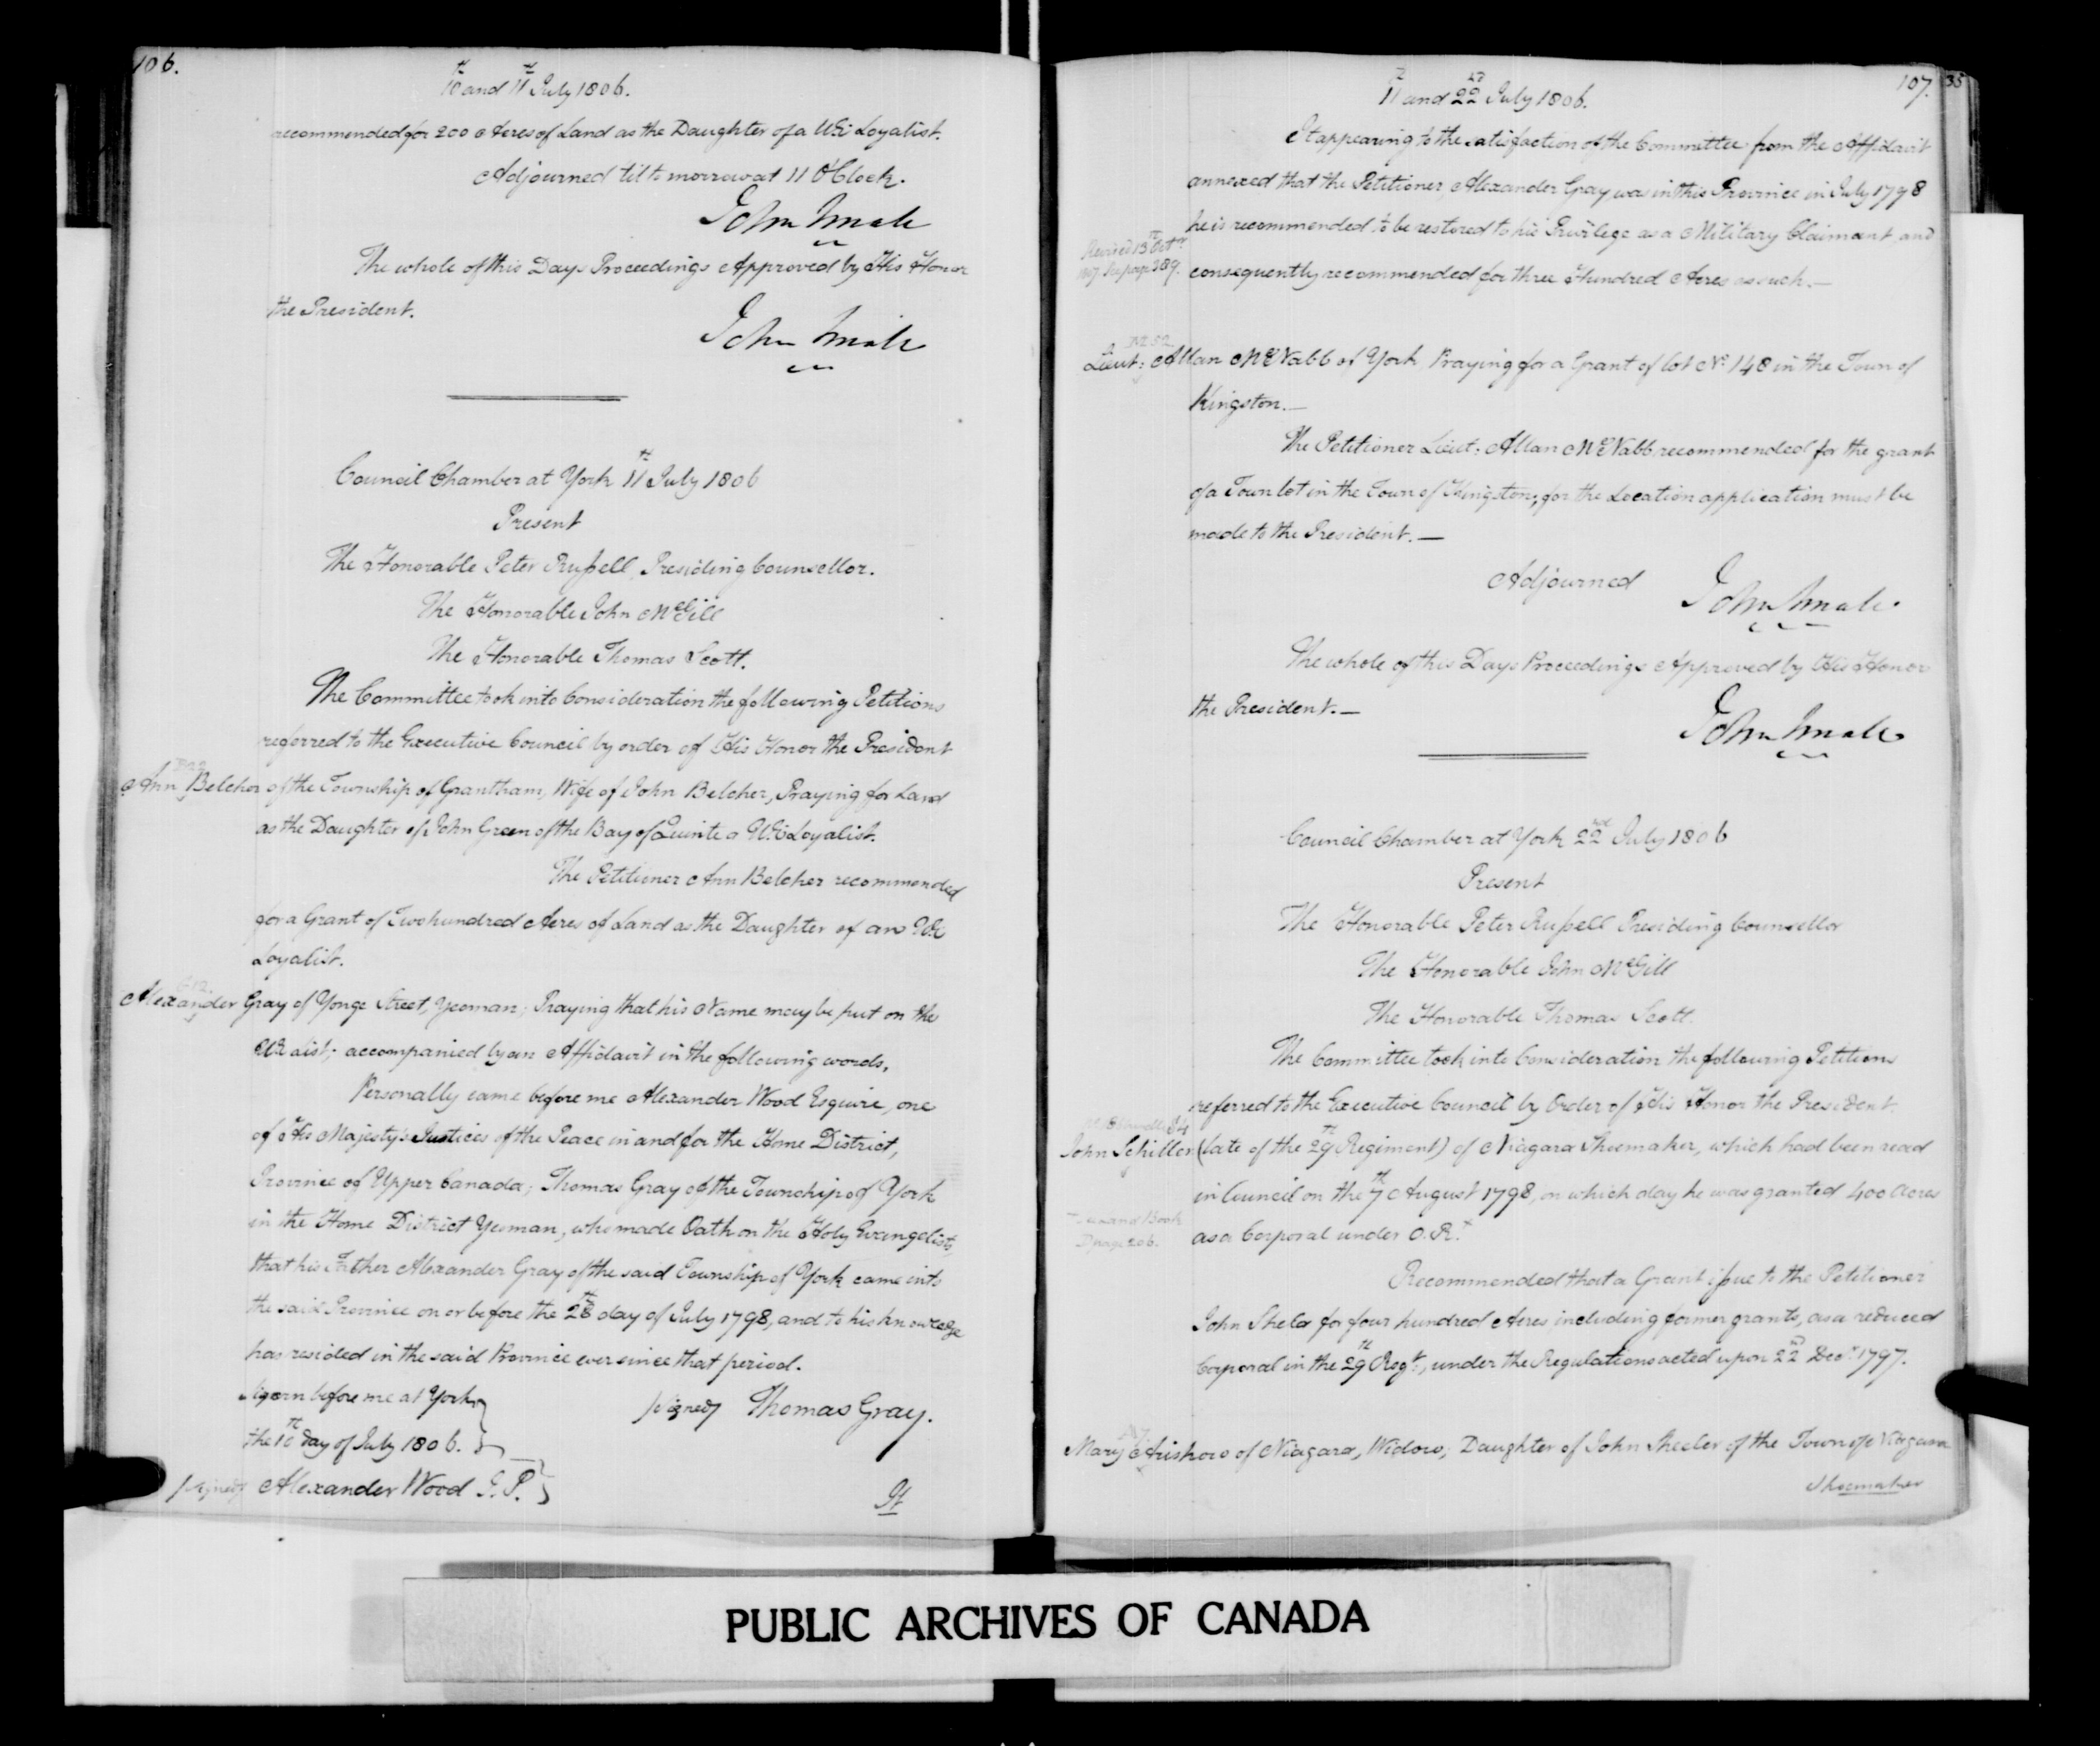 106.
10th and 11th July 1806.
recommended for 200 Acres of Land as the Daughter of a UE Loyalist.
Adjourned til to morrow at 11 O'Clock.
John Small
The whole of this Days Proceedings Approved by His Honor
the President.
John Small
Council Chamber at York 11th July 1806
Present
The Honorable Peter Russell Presiding Counsellor.
The Honorable John McGill
The Honorable Thomas Scott.
The Committee took into Consideration the following Petitions
referred to the Executive Council by order of His Honor the President
Ann Belcher of the Township of Grantham, Wife of John Belcher, Praying for Land
as the Daughter of John Green of the Bay of Quinte a UE Loyalist.
The Petitioner Ann Belcher recommended
for a Grant of Two hundred Acres of Land as the Daughter of an UE
Loyalist.
Alexander Gray of Yonge Street, Yeoman; Praying that his Name may be put on the
UE List; accompanied by an Affidavit in the following words,
Personally came before me Alexander Wood Esquire, one
of His Majesty's Justices of the Peace in and for the Home District,
Province of Upper Canada; Thomas Gray of the Township of York
in the Home District Yeoman, who made Oath on the Holy Evangelists,
that his Father Alexander Gray of the said Township of York came into
the said Province on or before the 28th day of July 1798, and to his knowledge
has resided in the said Province ever since that period.
Sworn before me at York
the 10th day of July 1806.
signed Thomas Gray.
signed Alexander Wood J. P.
It
107.
35
11th and 22nd July 1806.
It appearing to the satisfaction of the Committee from the Affidavit
annexed that the Petitioner Alexander Gray was in this Province in July 1798
he is recommended to be restored to his Privilege as a Military Claimant, and
consequently recommended for three Hundred Acres as such.—
Revised 13th Octr
1807. See page 389.
Lieut: Allan McNabb of York, Praying for a Grant of lot No. 148 in the Town of
Kingston.—
The Petitioner Lieut: Allan McNabb recommended for the grant
of a Town lot in the Town of Kingston; for the Location application must be
made to the President.—
Adjourned
John Small
The whole of this Days Proceedings Approved by His Honor
the President.—
John Small
Council Chamber at York 22nd July 1806
Present
The Honorable Peter Russell Presiding Counsellor
The Honorable John McGill
The Honorable Thomas Scott.
The Committee took into Consideration the following Petitions
referred to the Executive Council by Order of His Honor the President.
John Schiller (late of the 29th Regiment) of Niagara Shoemaker, which had been read
in Council on the 7th August 1798, on which day he was granted 400 Acres
as a Corporal under O. R.
Land Book
D page 206.
Recommended that a Grant issue to the Petitioner
John Shela for four hundred Acres including former grants, as a reduced
Corporal in the 29th Regt., under the Regulations acted upon 22nd Decr. 1797.
Mary of Niagara, Widow; Daughter of John Sheeler of the Town of Niagara
Shoemaker
PUBLIC ARCHIVES OF CANADA